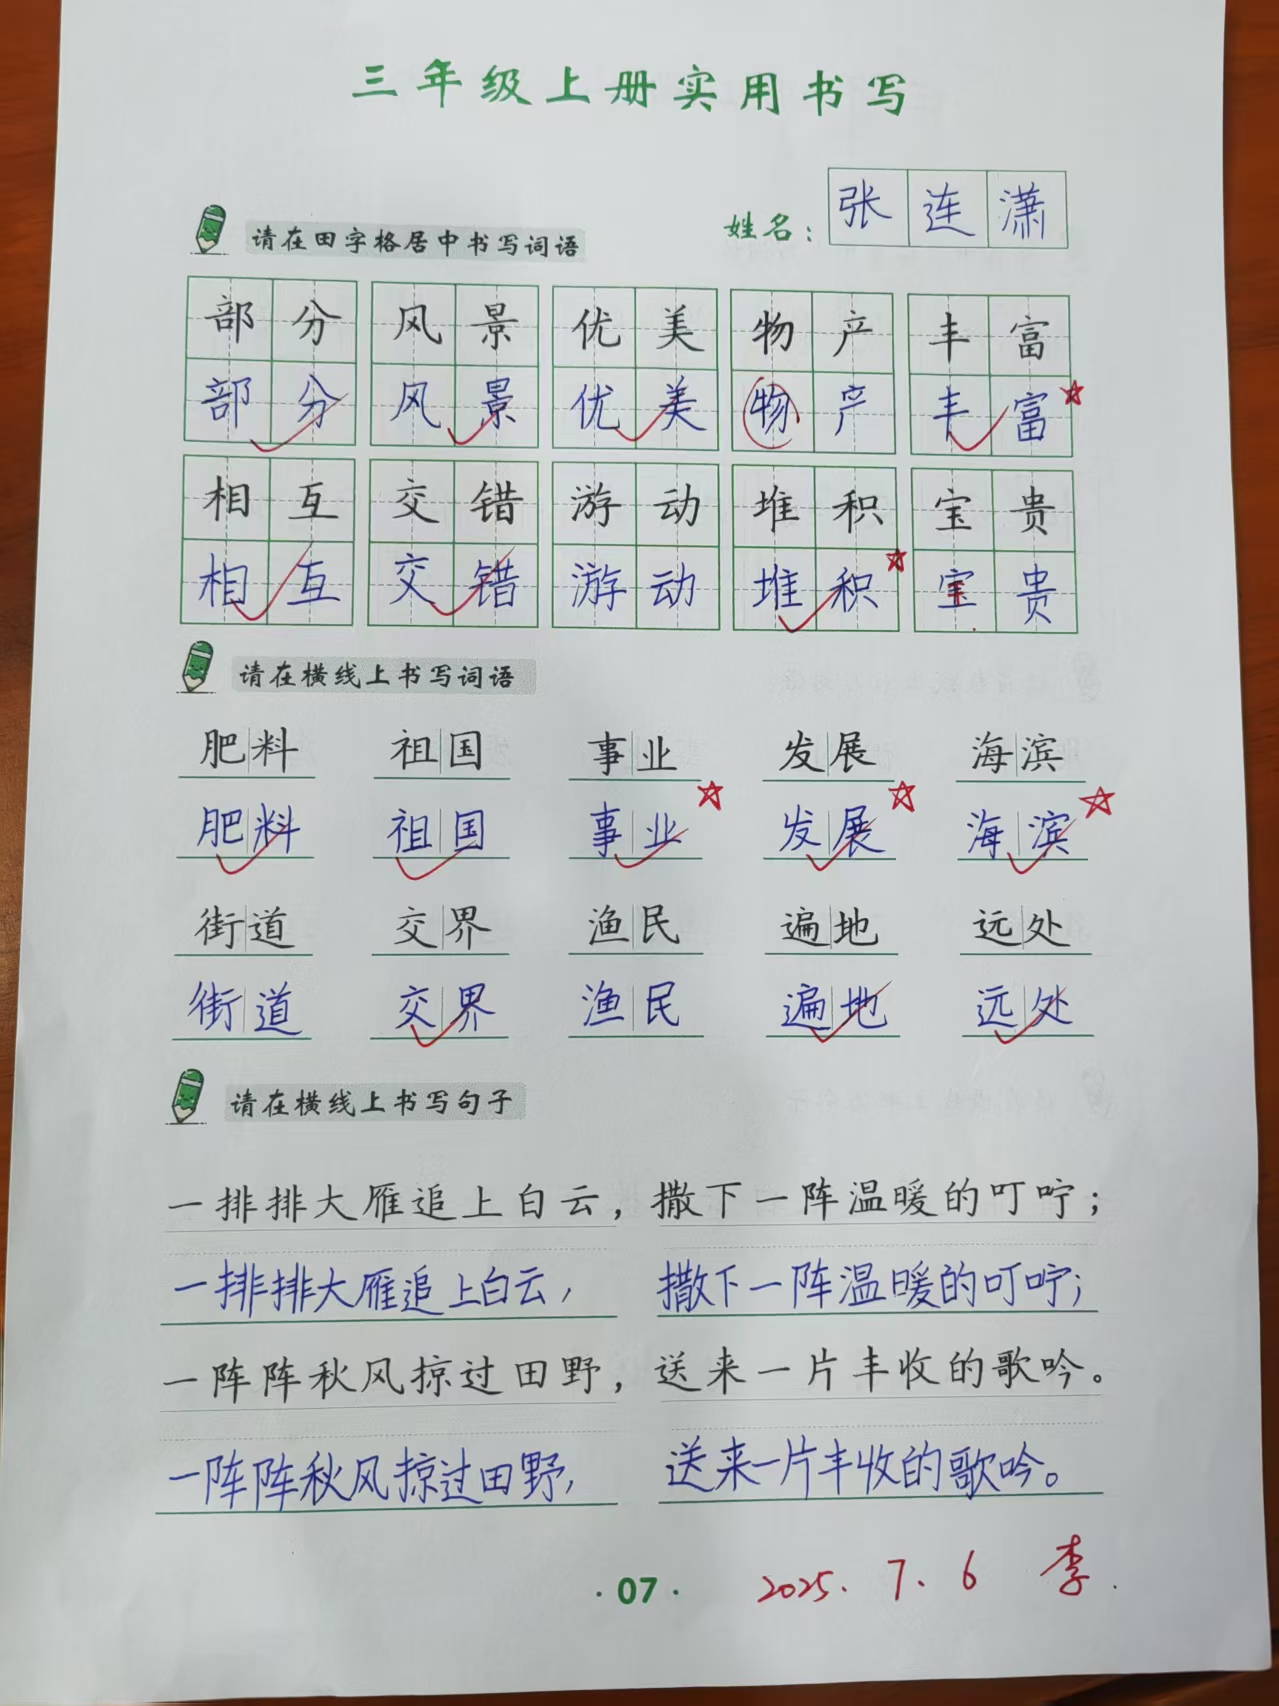 三年级上册实用书写
姓名：张连潇
请在田字格居中书写词语
部分 风景 优美 物产 丰富
部分 风景 优美 物产 丰富
相互 交错 游动 堆积 宝贵
相互 交错 游动 堆积 宝贵
请在横线上书写词语
肥料 祖国 事业 发展 海滨
肥料 祖国 事业 发展 海滨
街道 交界 渔民 遍地 远处
街道 交界 渔民 遍地 远处
请在横线上书写句子
一排排大雁追上白云，撒下一阵温暖的叮咛；
一排排大雁追上白云，撒下一阵温暖的叮咛；
一阵阵秋风掠过田野，送来一片丰收的歌吟。
一阵阵秋风掠过田野，送来一片丰收的歌吟。
·07·
2025.7.6 李